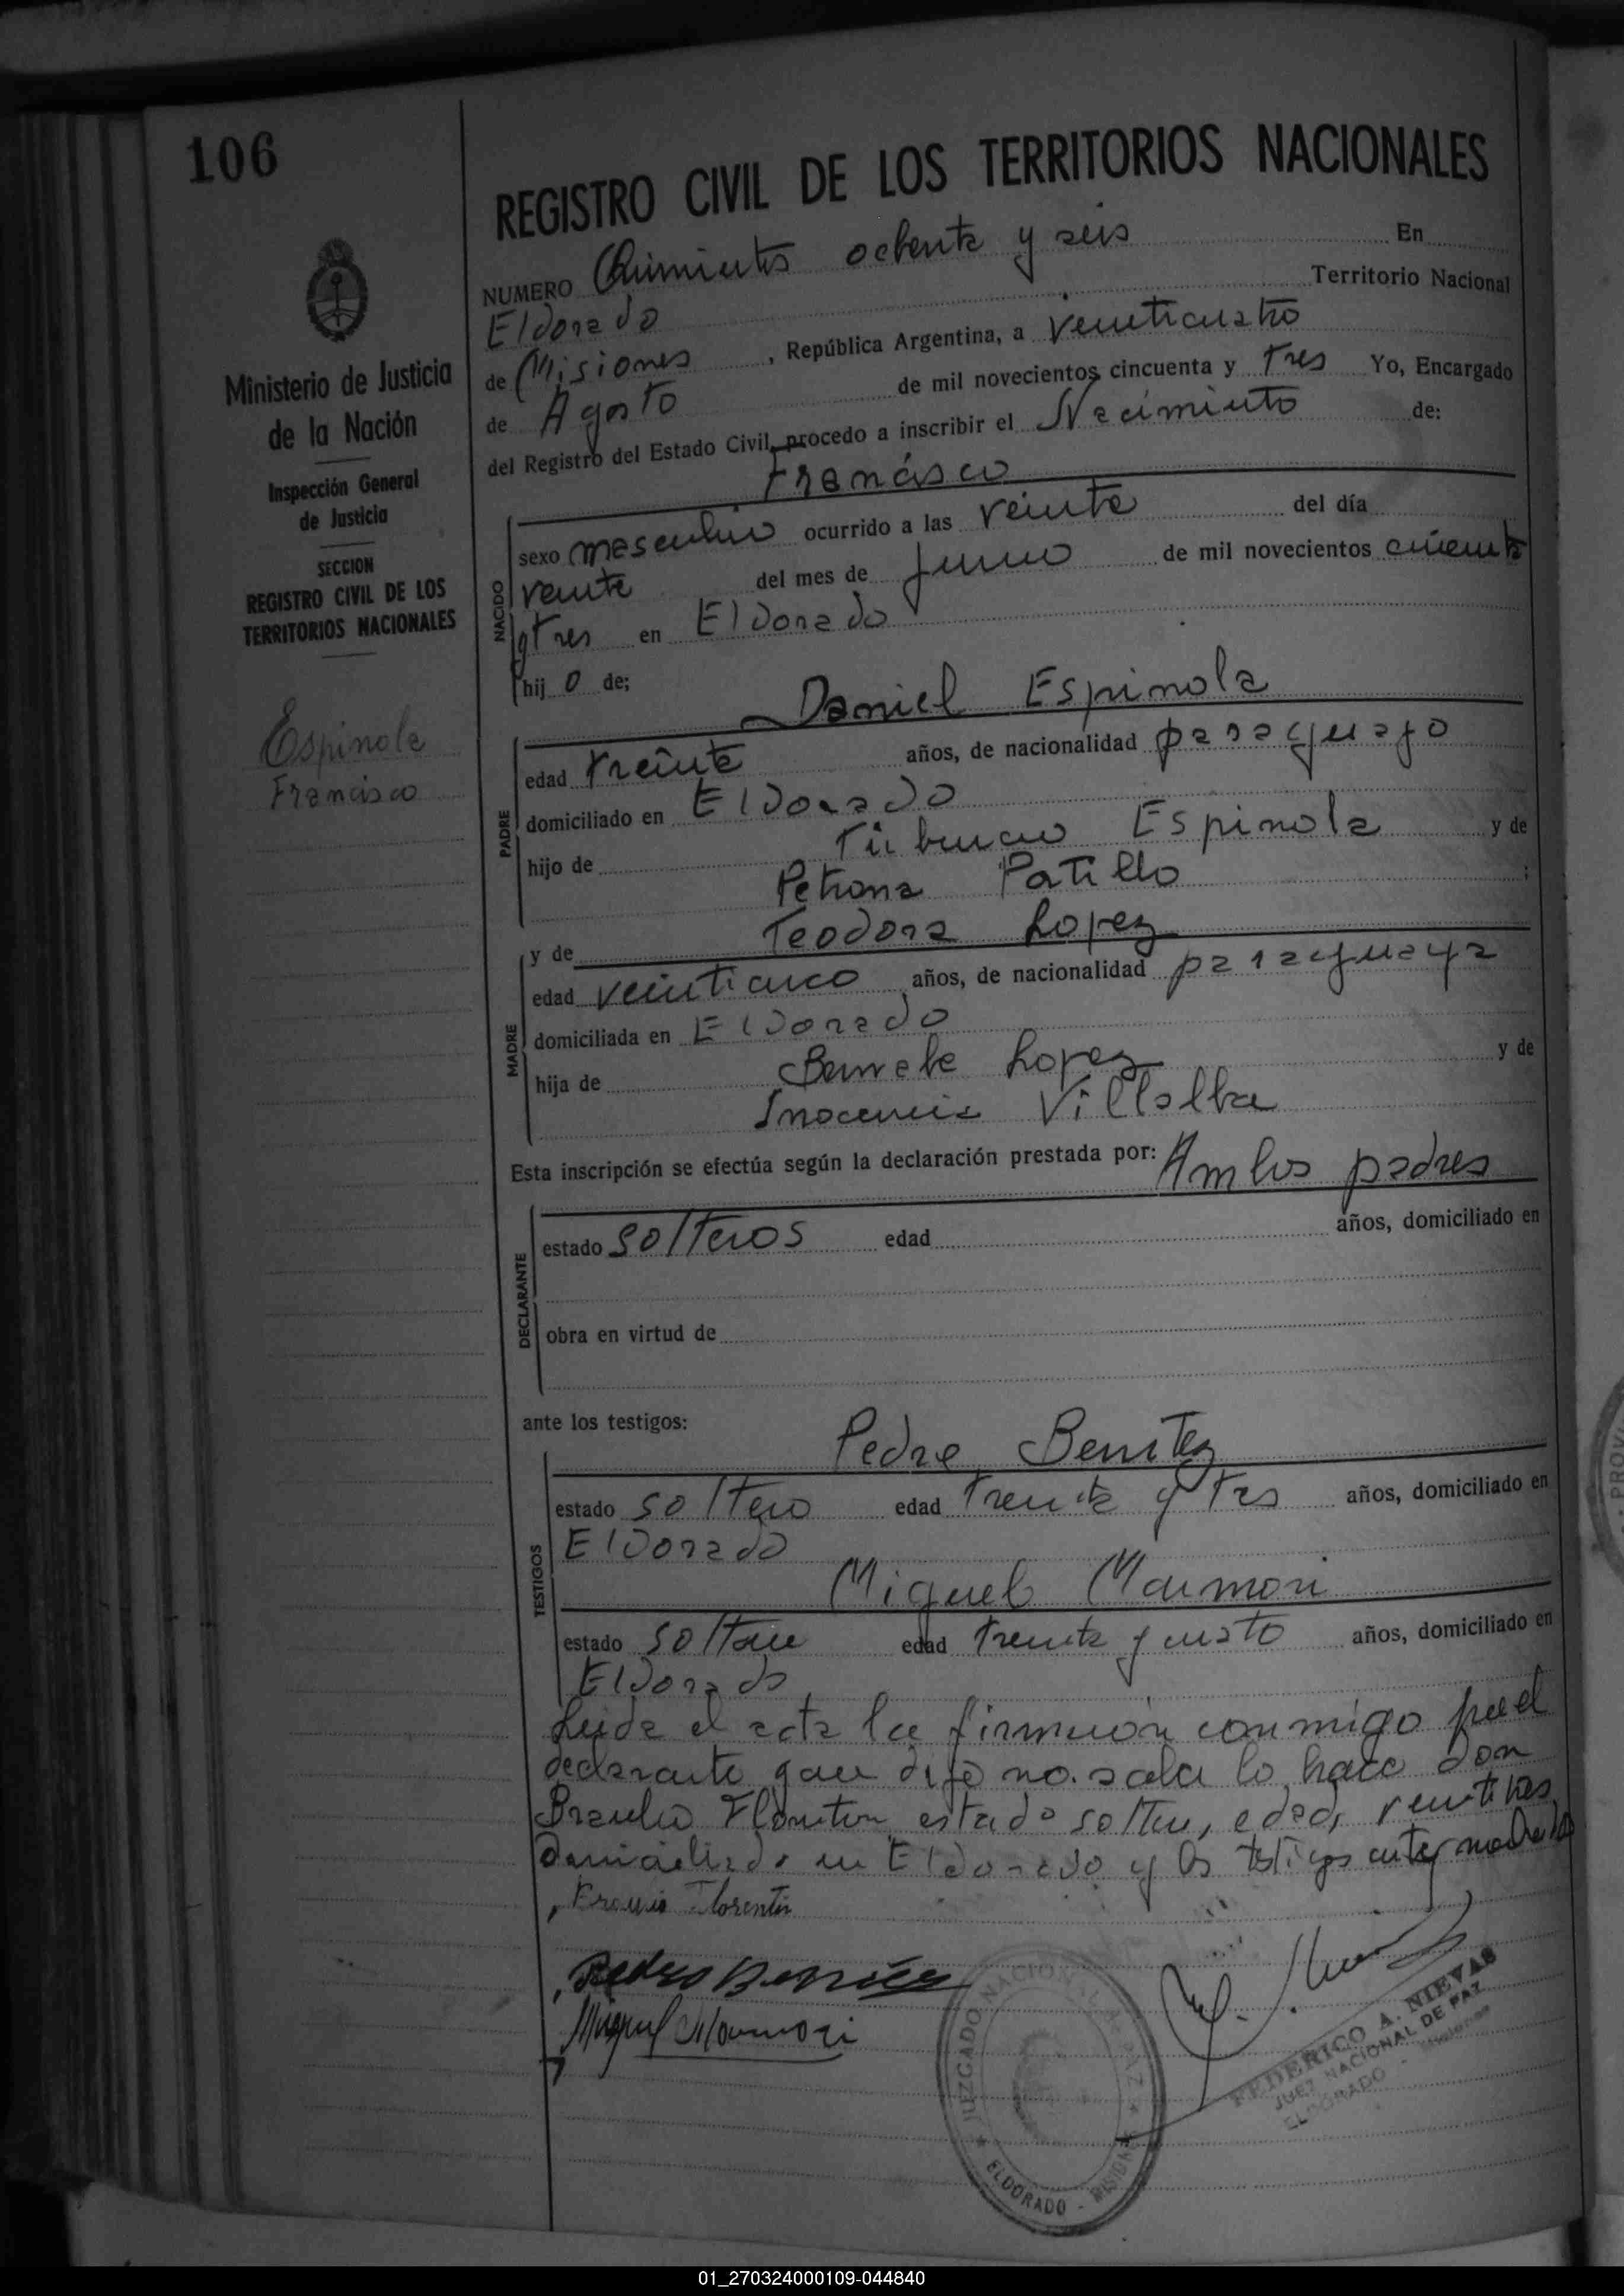 106
REGISTRO CIVIL DE LOS TERRITORIOS NACIONALES
NUMERO Quinientos ochenta y seis En
Eldorado Territorio Nacional
de Misiones, República Argentina, a veinticuatro
de Agosto de mil novecientos cincuenta y tres Yo, Encargado
del Registro del Estado Civil, procedo a inscribir el Nacimiento de:
Francisco
NACIDO
sexo masculino ocurrido a las veinte del día
veinte del mes de Junio de mil novecientos cincuenta
y tres en Eldorado
hij o de;
Daniel Espinola
PADRE
edad treinta años, de nacionalidad paraguayo
domiciliado en Eldorado
hijo de Espinola y de
Petrona Patillo ;
y de Teodora Lopez
MADRE
edad veinticinco años, de nacionalidad paraguaya
domiciliada en Eldorado
hija de Lopez y de
Inocencia Villalba
Esta inscripción se efectúa según la declaración prestada por: Ambos padres
DECLARANTE
estado solteros edad años, domiciliado en
obra en virtud de
ante los testigos:
Pedro Benitez
TESTIGOS
estado soltero edad treinta y tres años, domiciliado en
Eldorado
Miguel Marmori
estado soltero edad treinta y cuatro años, domiciliado en
Eldorado
Leida el acta la conmigo por el
declarante que dijo no saber lo hace don
Braulio Florentin estado soltero, edad, veintitres
domiciliado en Eldorado y los testigos
Braulio Florentin
Pedro Benitez
Miguel Marmori
Ministerio de Justicia
de la Nación
Inspección General
de Justicia
SECCION
REGISTRO CIVIL DE LOS
TERRITORIOS NACIONALES
Espinola
Francisco
JUZGADO NACIONAL DE PAZ
ELDORADO - MISIONES
FEDERICO A. NIEVAS
JUEZ NACIONAL DE PAZ
ELDORADO - Misiones
01_270324000109-044840